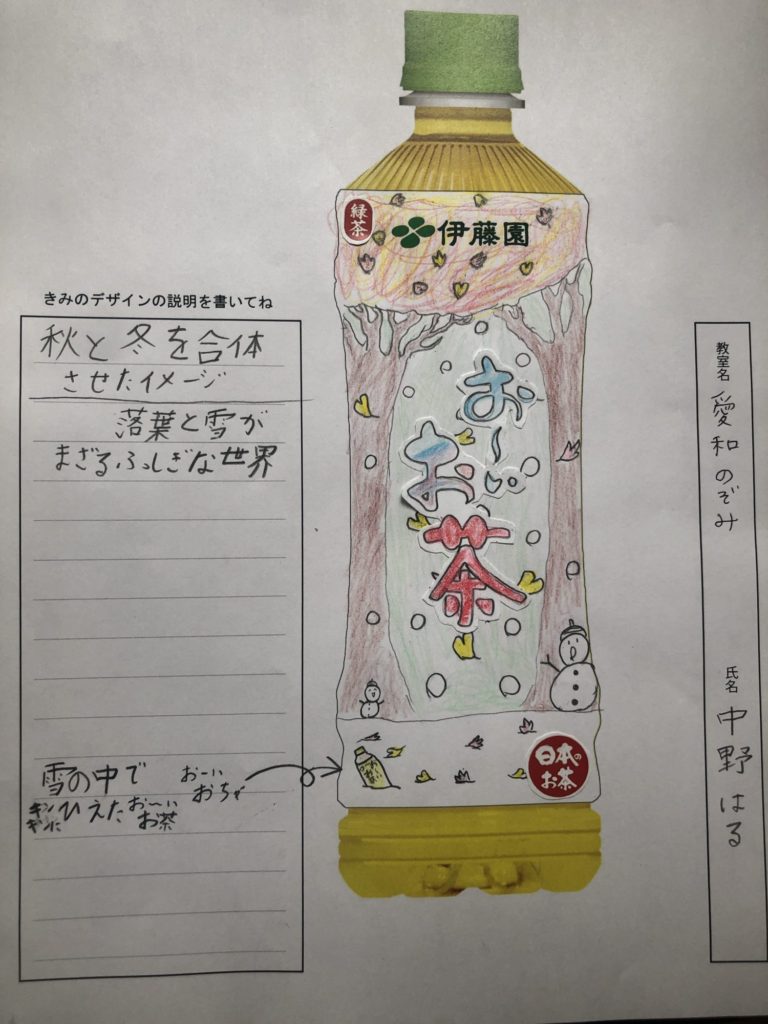 緑茶
伊藤園
きみのデザインの説明を書いてね
秋と冬を合体
させたイメージ
落葉と雪が
まざるふしぎな世界
お〜い
お茶
雪の中で
キンキンに
ひえたお〜い
お茶
おーい
おちゃ
日本の
お茶
教室名
愛和のぞみ
氏名
中野はる